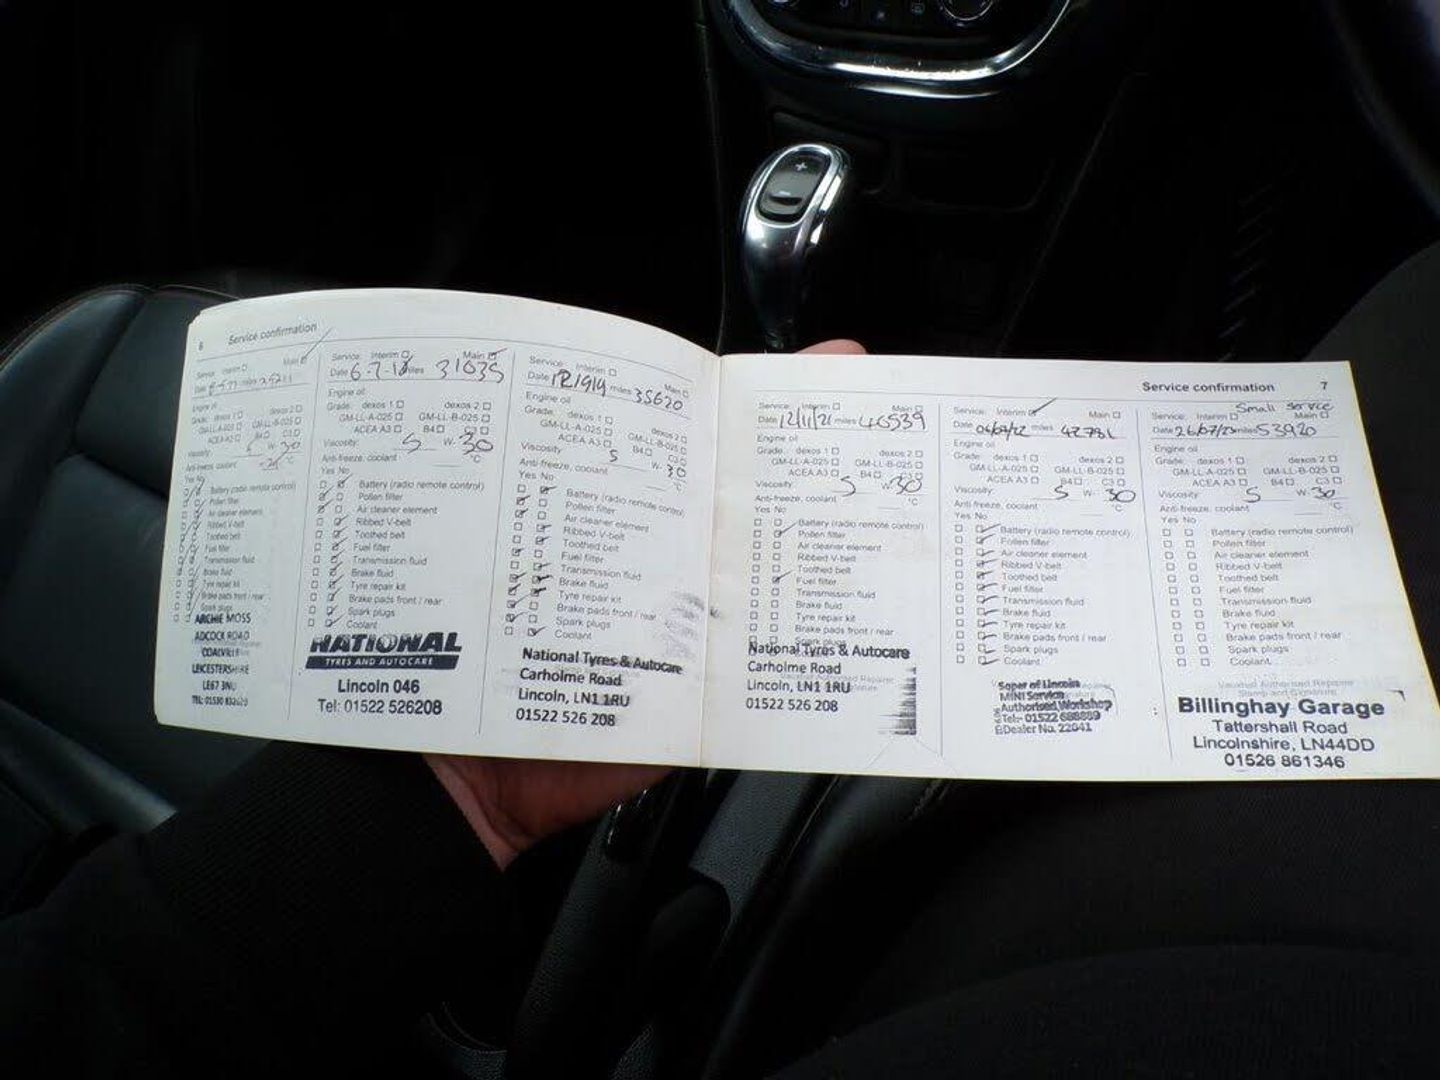 6 Service confirmation
Service: Interim Main
Date miles
Engine oil
Grade: dexos 1 dexos 2
GM-LL-A-025 GM-LL-B-025
ACEA A3 B4 C3
Viscosity W- 30
Anti-freeze, coolant °C
Yes No
Battery (radio remote control)
Pollen filter
Air cleaner element
Ribbed V-belt
Toothed belt
Fuel filter
Transmission fluid
Brake fluid
Tyre repair kit
Brake pads front / rear
Spark plugs
ARCHIE MOSS
ADCOCK ROAD
COALVILLE
LEICESTERSHIRE
LE67 3NU
Service: Interim Main
Date 6-7-18 miles 31035
Engine oil
Grade: dexos 1 dexos 2
GM-LL-A-025 GM-LL-B-025
ACEA A3 B4 C3
Viscosity 5 W- 30
Anti-freeze, coolant °C
Yes No
Battery (radio remote control)
Pollen filter
Air cleaner element
Ribbed V-belt
Toothed belt
Fuel filter
Transmission fluid
Brake fluid
Tyre repair kit
Brake pads front / rear
Spark plugs
Coolant
NATIONAL
TYRES AND AUTOCARE
Lincoln 046
Tel: 01522 526208
Service: Interim Main
Date 12/9/19 miles 35620
Engine oil
Grade: dexos 1 dexos 2
GM-LL-A-025 GM-LL-B-025
ACEA A3 B4 C3
Viscosity 5 W- 30
Anti-freeze, coolant °C
Yes No
Battery (radio remote control)
Pollen filter
Air cleaner element
Ribbed V-belt
Toothed belt
Fuel filter
Transmission fluid
Brake fluid
Tyre repair kit
Brake pads front / rear
Spark plugs
Coolant
National Tyres & Autocare
Carholme Road
Lincoln, LN1 1RU
01522 526 208
Service confirmation 7
Service: Interim Main
Date 12/11/21 miles 46539
Engine oil
Grade: dexos 1 dexos 2
GM-LL-A-025 GM-LL-B-025
ACEA A3 B4 C3
Viscosity 5 W- 30
Anti-freeze, coolant °C
Yes No
Battery (radio remote control)
Pollen filter
Air cleaner element
Ribbed V-belt
Toothed belt
Fuel filter
Transmission fluid
Brake fluid
Tyre repair kit
Brake pads front / rear
Spark plugs
National Tyres & Autocare
Carholme Road
Lincoln, LN1 1RU
01522 526 208
Service: Interim Main
Date 06/07/22 miles 47781
Engine oil
Grade: dexos 1 dexos 2
GM-LL-A-025 GM-LL-B-025
ACEA A3 B4 C3
Viscosity 5 W- 30
Anti-freeze, coolant °C
Yes No
Battery (radio remote control)
Pollen filter
Air cleaner element
Ribbed V-belt
Toothed belt
Fuel filter
Transmission fluid
Brake fluid
Tyre repair kit
Brake pads front / rear
Spark plugs
Coolant
Soper of Lincoln
MINI Service
Authorised Workshop
Tel:- 01522 688889
Dealer No. 22041
Small service
Service: Interim Main
Date 26/07/23 miles 53920
Engine oil
Grade: dexos 1 dexos 2
GM-LL-A-025 GM-LL-B-025
ACEA A3 B4 C3
Viscosity 5 W- 30
Anti-freeze, coolant °C
Yes No
Battery (radio remote control)
Pollen filter
Air cleaner element
Ribbed V-belt
Toothed belt
Fuel filter
Transmission fluid
Brake fluid
Tyre repair kit
Brake pads front / rear
Spark plugs
Coolant
Vauxhall Authorised Repairer
Stamp and Signature
Billinghay Garage
Tattershall Road
Lincolnshire, LN44DD
01526 861346